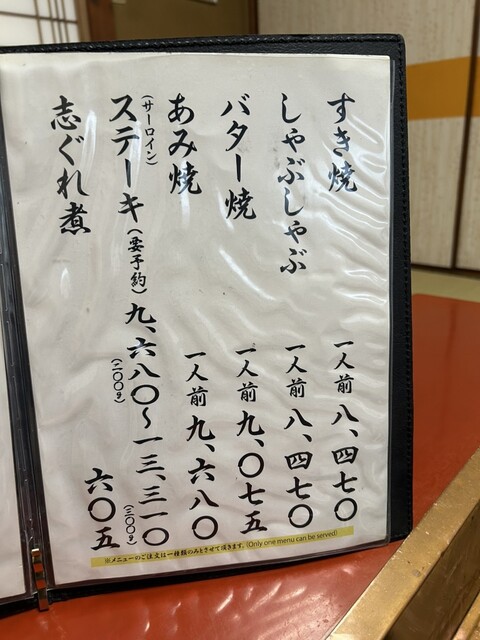 すき焼 一人前 八、四七〇
しゃぶしゃぶ 一人前 八、四七〇
バター焼 一人前 九、〇七五
あみ焼 一人前 九、六八〇
(サーロイン)
ステーキ(要予約) 九、六八〇～一三、三一〇
(二〇〇g) (三〇〇g)
志ぐれ煮 六〇五
※メニューのご注文は一種類のみとさせて頂きます。(Only one menu can be served)